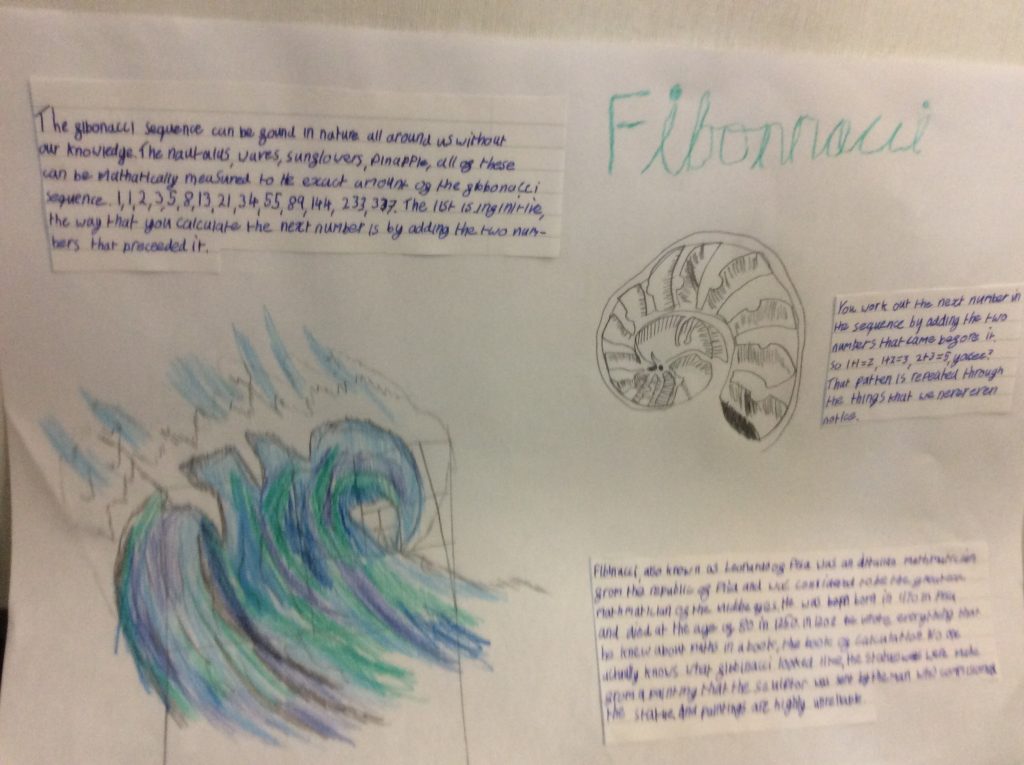 Fibonnacci
The gibonacci sequence can be gound in nature all around us without
our knowledge. The nautalus, waves, sunglowers, pinapple, all og these
can be mathatically measured to the exact amount og the gibbonacci
sequence. 1,1,2,3,5,8,13,21,34,55,89,144, 233,377. The list is inginitive,
the way that you calculate the next number is by adding the two num-
bers that preceeded it.
You work out the next number in
the sequence by adding the two
numbers that came begore it.
So 1+1=2, 1+2=3, 2+3=5, yasee?
That patten is repeated through
the things that we never even
notice.
Fibinacci, also known as Leonardo og Pisa was an mathmatician
grom the republic og Pisa and was considered to be the greatest
mathmatician og the middle ages. He was born in 1170 in Pisa
and died at the age og 80 in 1250. In 1202 he wrote everything that
he knew about maths in a book, the book og calculation. No one
actually knows what gibinacci looked like, the statues were made
grom a painting that the sculptor was sent by the man who comissioned
the statue. And paintings are highly unreliable.